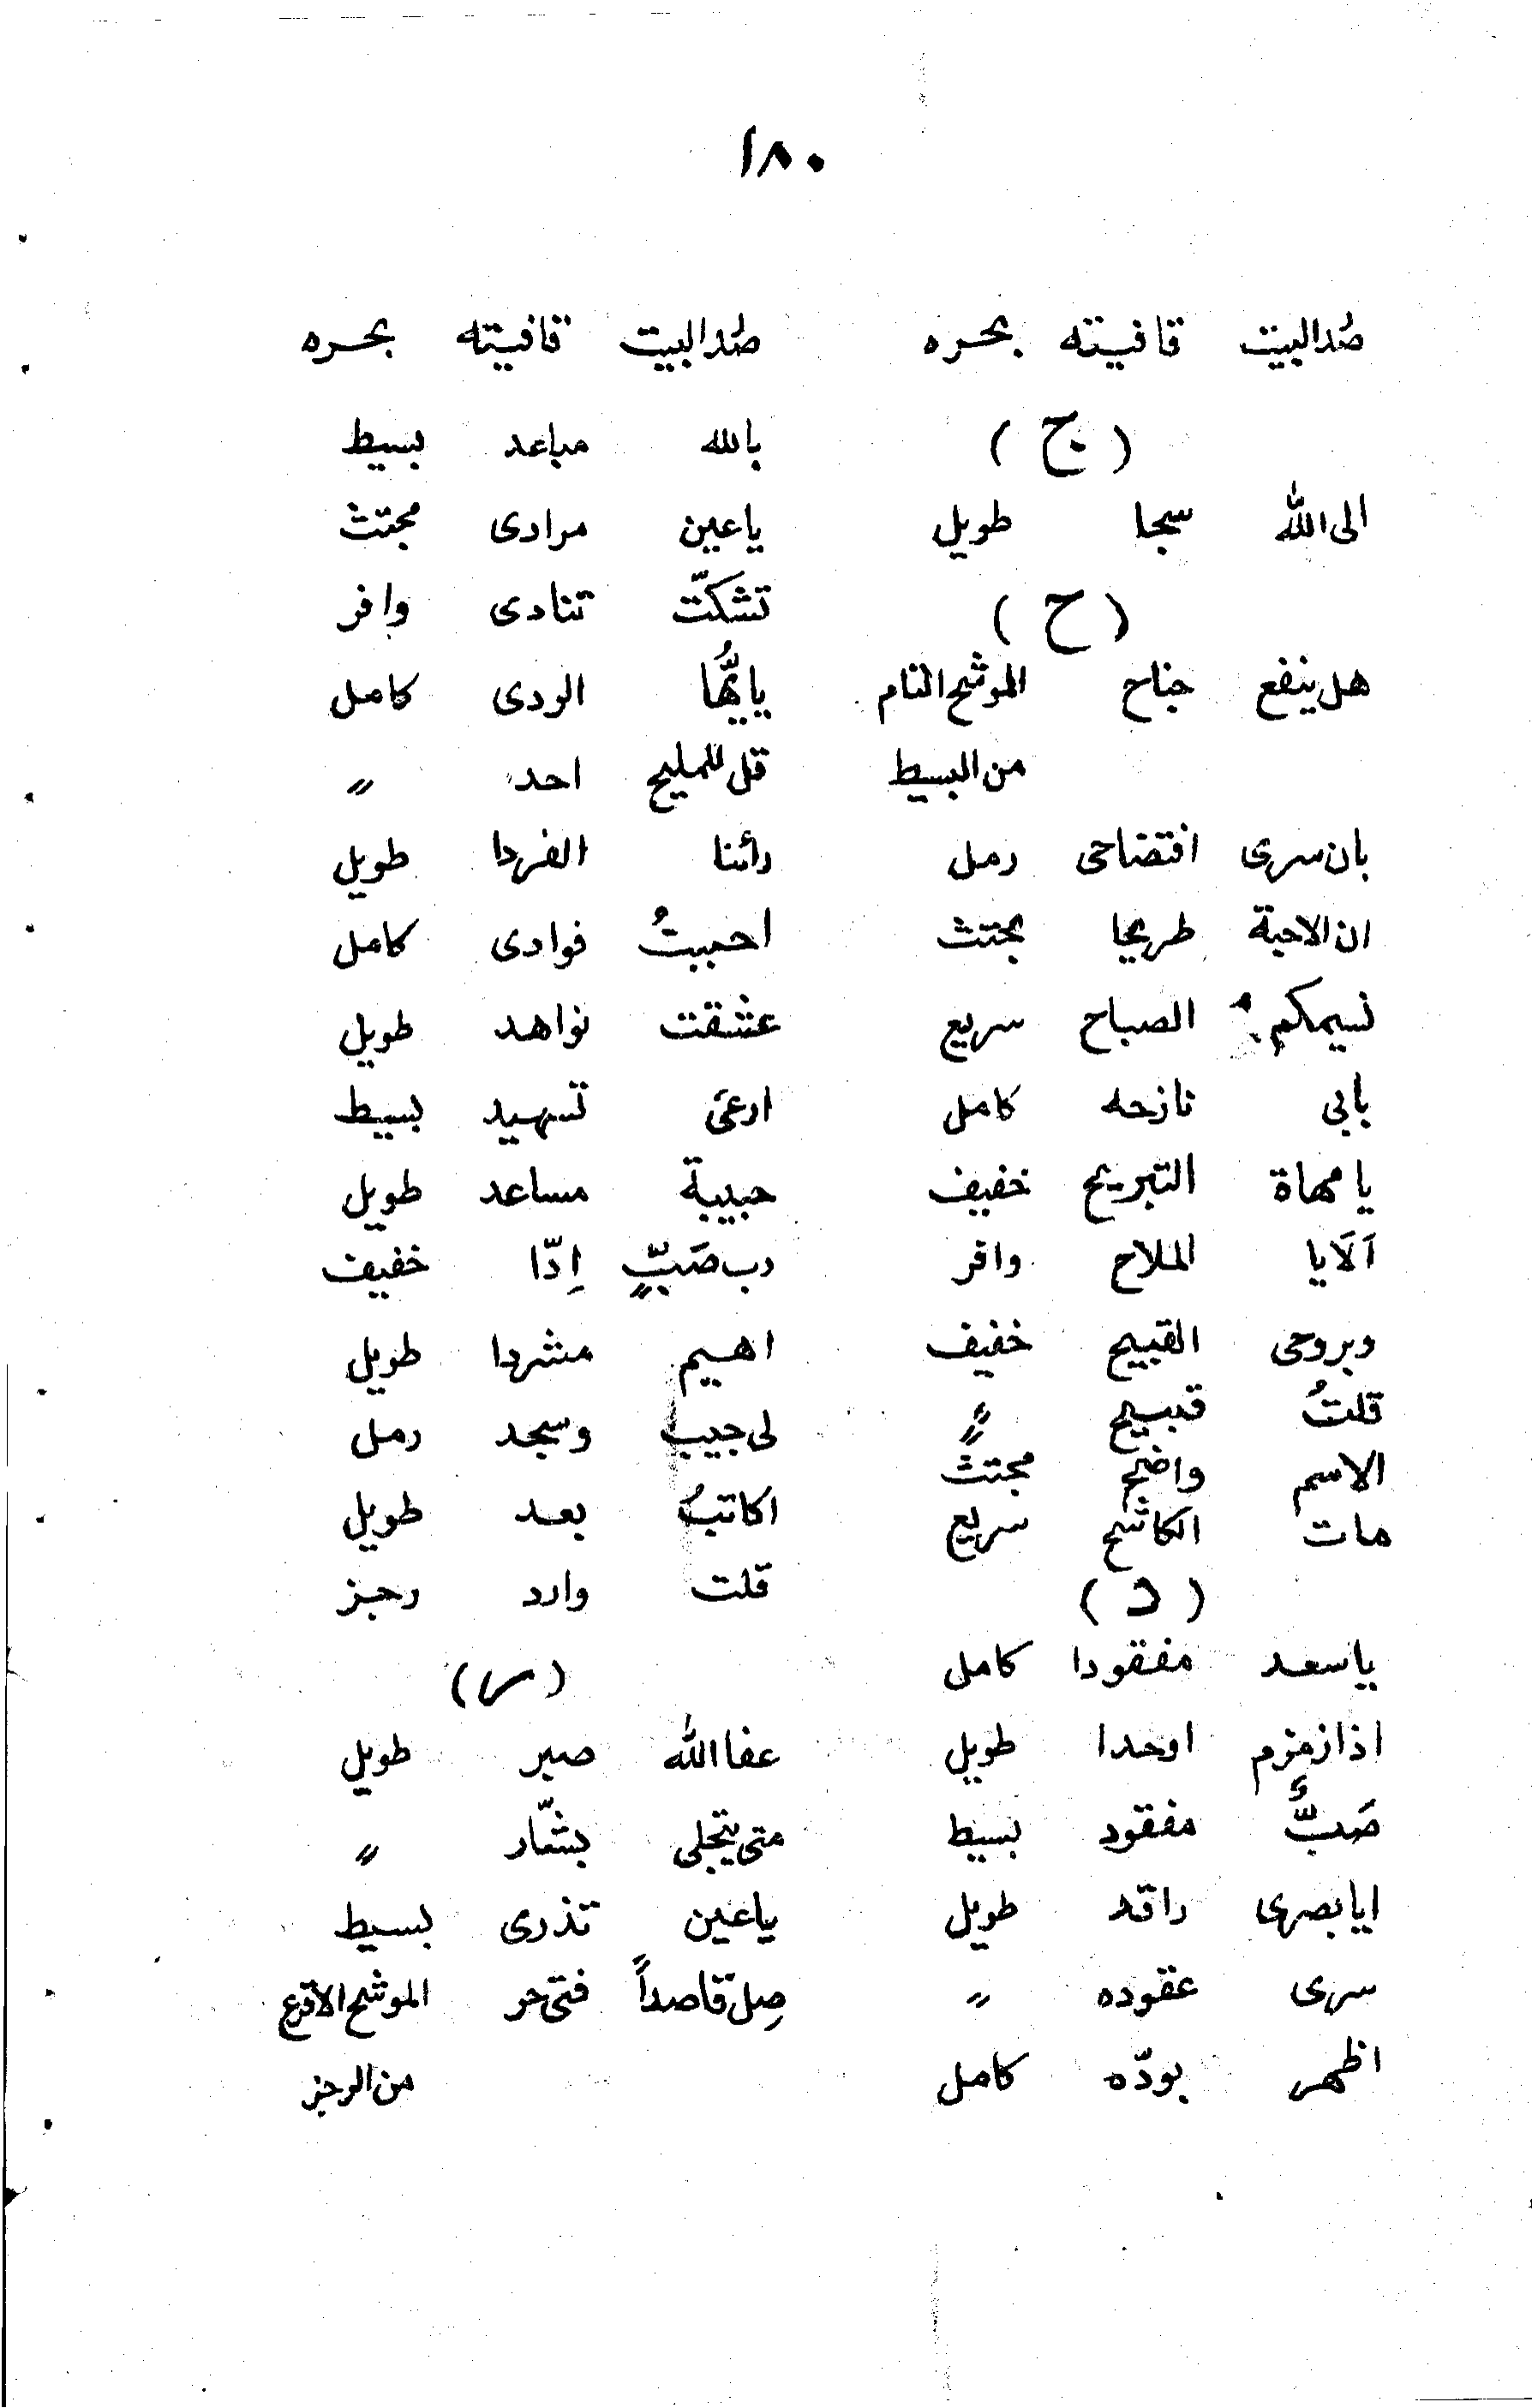 ١٨٠
صدالبيت قافيته بحره
(ج)
الى الله سجا طويل
(ح)
هل ينفع جناح الموشح التام
من البسيط
بان سرى افتضاحى رمل
ان الاحبة طريحا مجتث
نسيمكم الصباح سريع
بابى نازحه كامل
يا مهاة التبريح خفيف
اَلَايا الملاح وافر
وبروحى القبيح خفيف
قلتُ قبيح "
الاسم واضح مجتث
مات الكاشح سريع
(د)
ياسعد مفقودا كامل
اذا زمزم اوحدا طويل
صَبٌّ مفقود بسيط
ايا بصرى راقد طويل
سرى عقوده "
اظهر بودّه كامل
صدالبيت قافيته بحره
بالله مباعد بسيط
ياعين مرادى مجتث
تشكّت تنادى وافر
ياايُّها الودى كامل
قل للمليح احد "
رأتنا الفردا طويل
احببتُ فوادى كامل
عشقت نواهد طويل
ارعى تسهيد بسيط
حبيبة مساعد طويل
رب صَبٍّ اِدّا خفيف
اهيم مشردا طويل
لى حبيب وسجد رمل
اكاتبُ بعد طويل
قلت وارد رجز
(ر)
عفا الله صبر طويل
متى يتجلى بشّار "
ياعين تذرى بسيط
صِل قاصداً فتى حر الموشح الاقرع
من الرجز